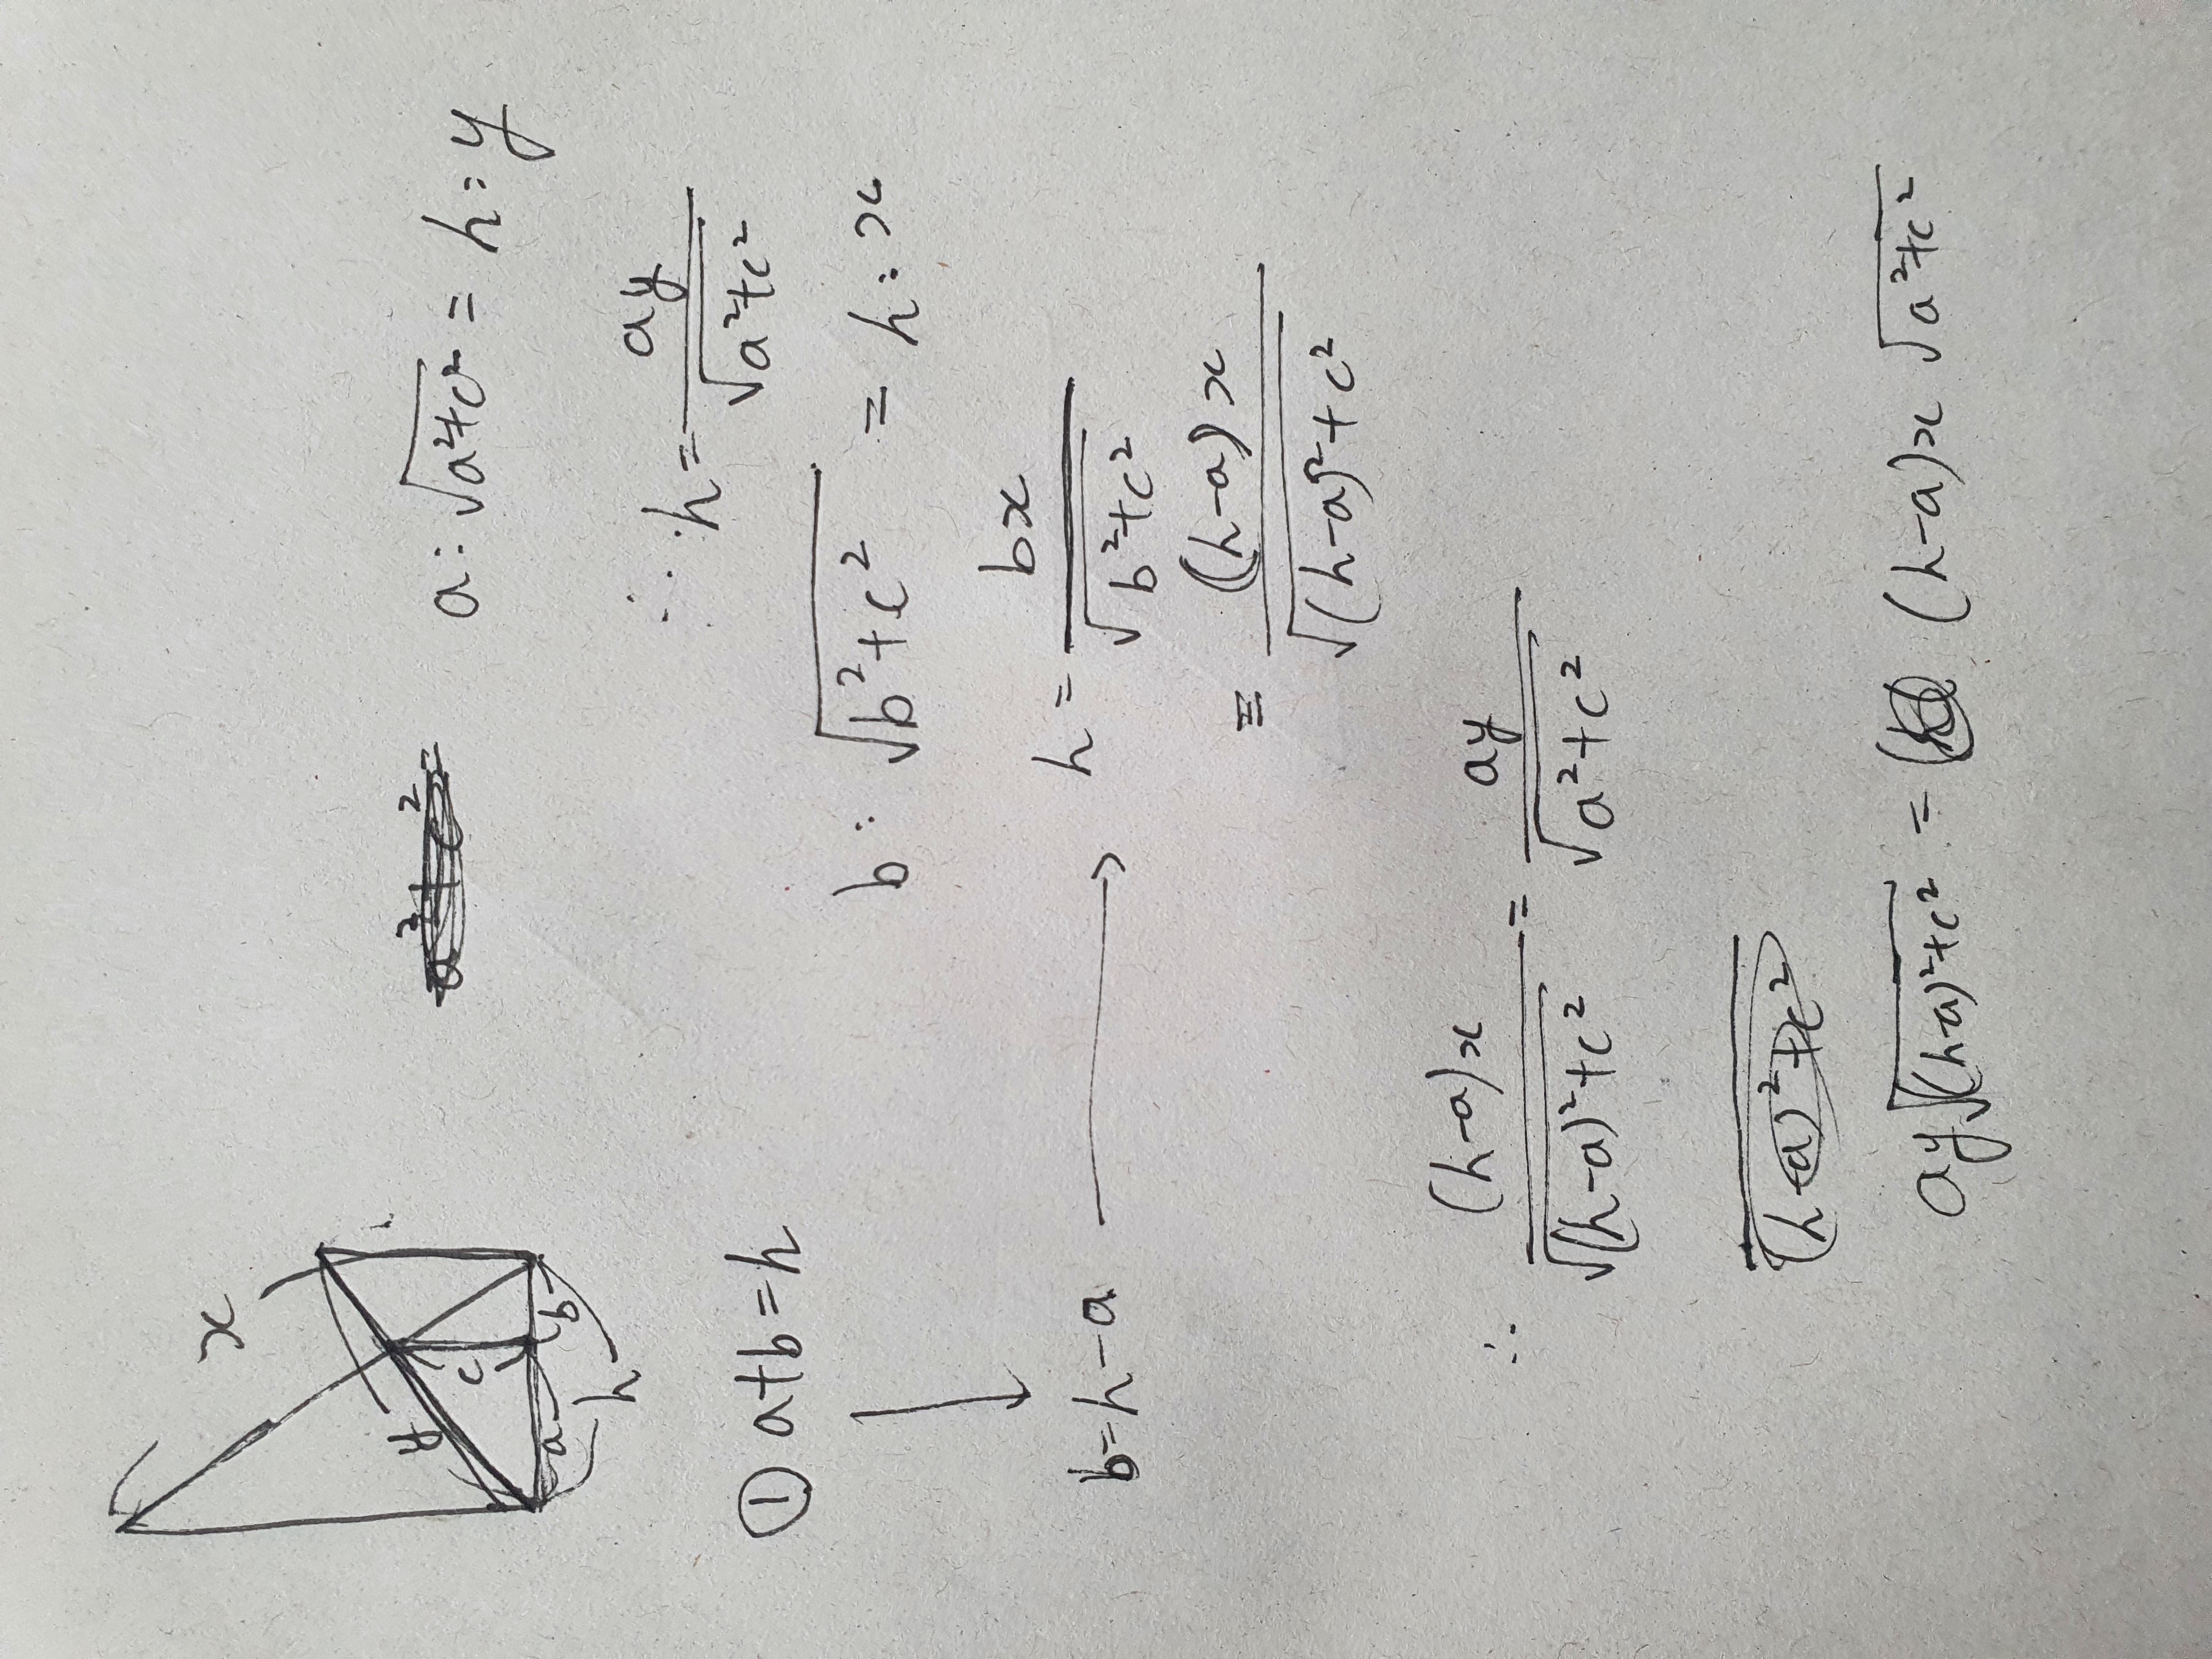 x
y
c
a b
h
a:√a²+c² = h:y
∴ h= ay/√a²+c²
① a+b=h
b: √b²+c² = h:x
b=h-a → h= bx/√b²+c²
= (h-a)x/√(h-a)²+c²
∴ (h-a)x/√(h-a)²+c² = ay/√a²+c²
(h-a)²+c²
ay√(h-a)²+c² = (h-a)x√a²+c²